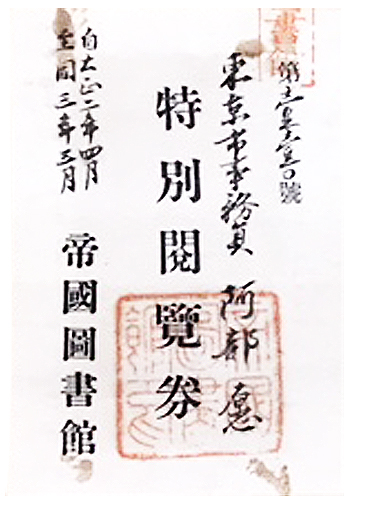 書館
第 號
東京市事務員 阿部 愿
特別閱覽券
自大正二年四月
至同三年三月
帝國圖書館